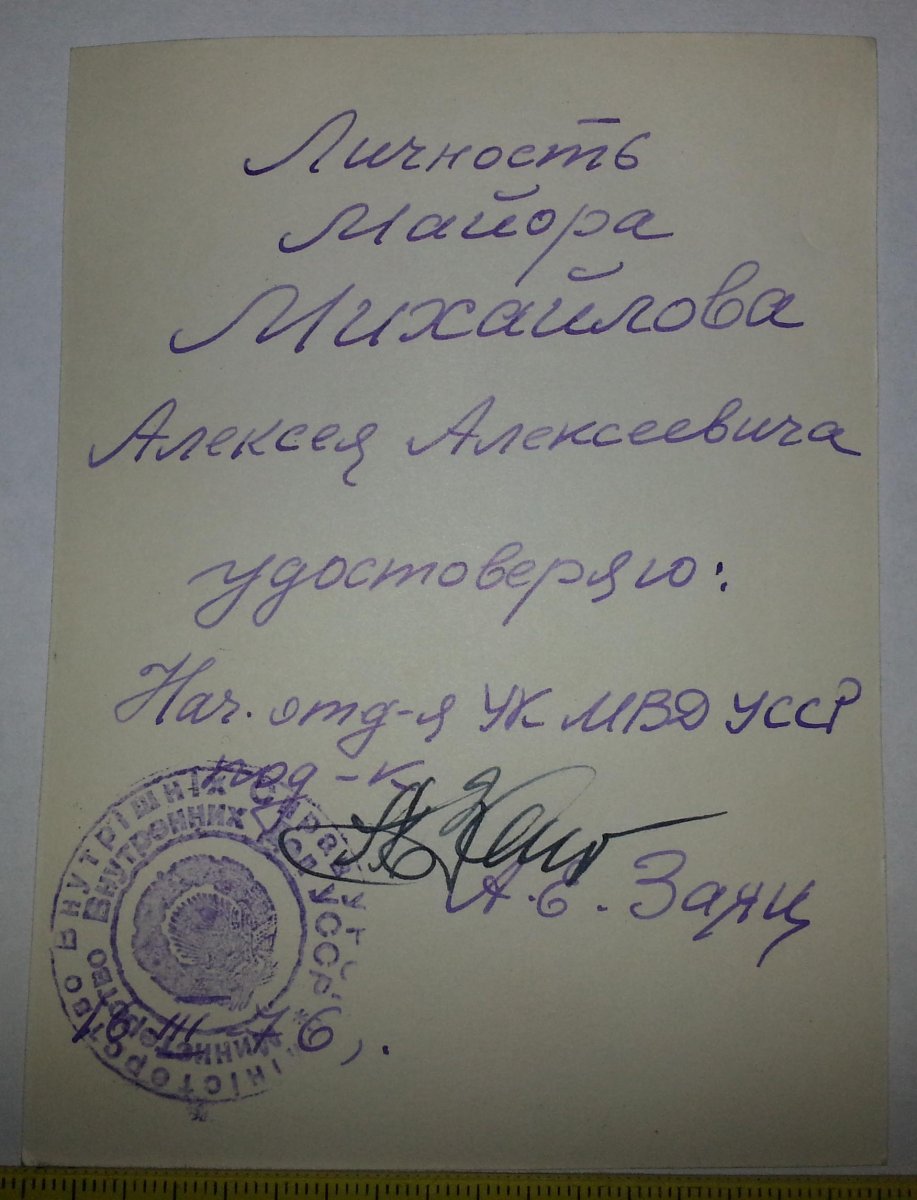 Личность
Майора
Михайлова
Алексея Алексеевича
удостоверяю:
Нач. отд-я УК МВД УССР
под-к
А.Е. Заяц
16 III-76,.
МІНІСТЕРСТВО ВНУТРІШНІХ СПРАВ УРСР
МИНИСТЕРСТВО ВНУТРЕННИХ ДЕЛ УССР